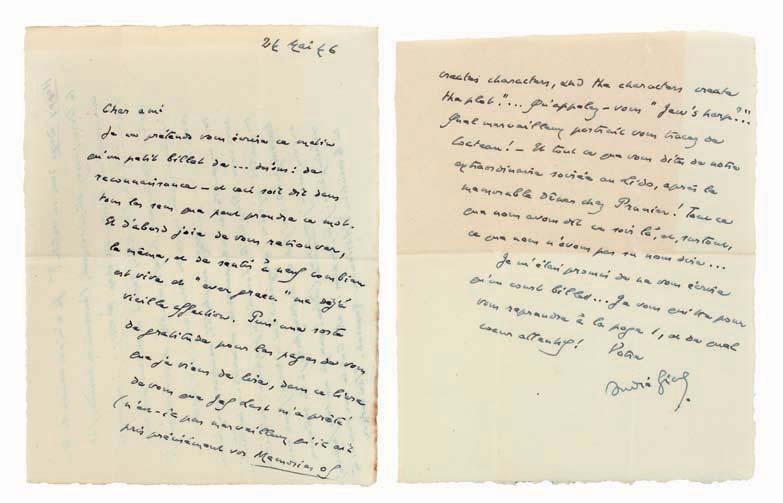 27 Mai 46
Cher ami
Je ne prétends vous écrire ce matin
qu'un petit billet de... disons : de
reconnaissance – et ceci soit dit dans
tous les sens que peut prendre ce mot.
Et d'abord joie de vous retrouver,
le même, et de sentir à neuf combien
est vive et "ever green" ma déjà
vieille affection. Puis une sorte
de gratitude pour les pages de vous
que je viens de lire, dans ce livre
de vous que Jef Last m'a prêté
(n'est-il pas merveilleux qu'il ait
pris précisément vos Memories of
creates characters, and the characters create
the plot."... Qu'appelez-vous "Jew's harp?"...
Quel merveilleux portrait vous tracez de
Cocteau! – Et tout ce que vous dites de notre
extraordinaire soirée au Lido, après le
mémorable dîner chez Prunier! Tout ce
que nous avons dit ce soir là, et, surtout,
ce que nous n'avons pas su nous dire...
Je m'étais promis de ne vous écrire
qu'un court billet... Je vous quitte pour
vous reprendre à la page 1, et de quel
cœur attentif!
Votre
André Gide.